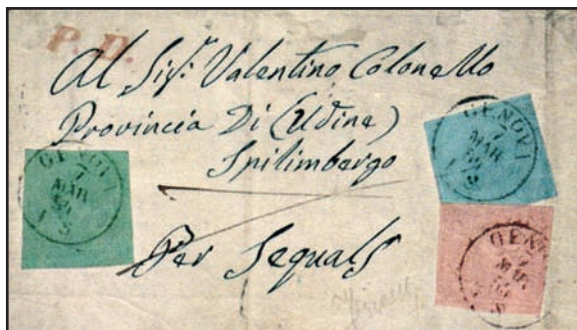 P.D.
Al Sig.r Valentino Colonello
Provincia Di (Udine)
Spilimbargo
Per Sequals
GENOVA
7
MAR
GENOVA
7
MAR
GEN
7
MAR